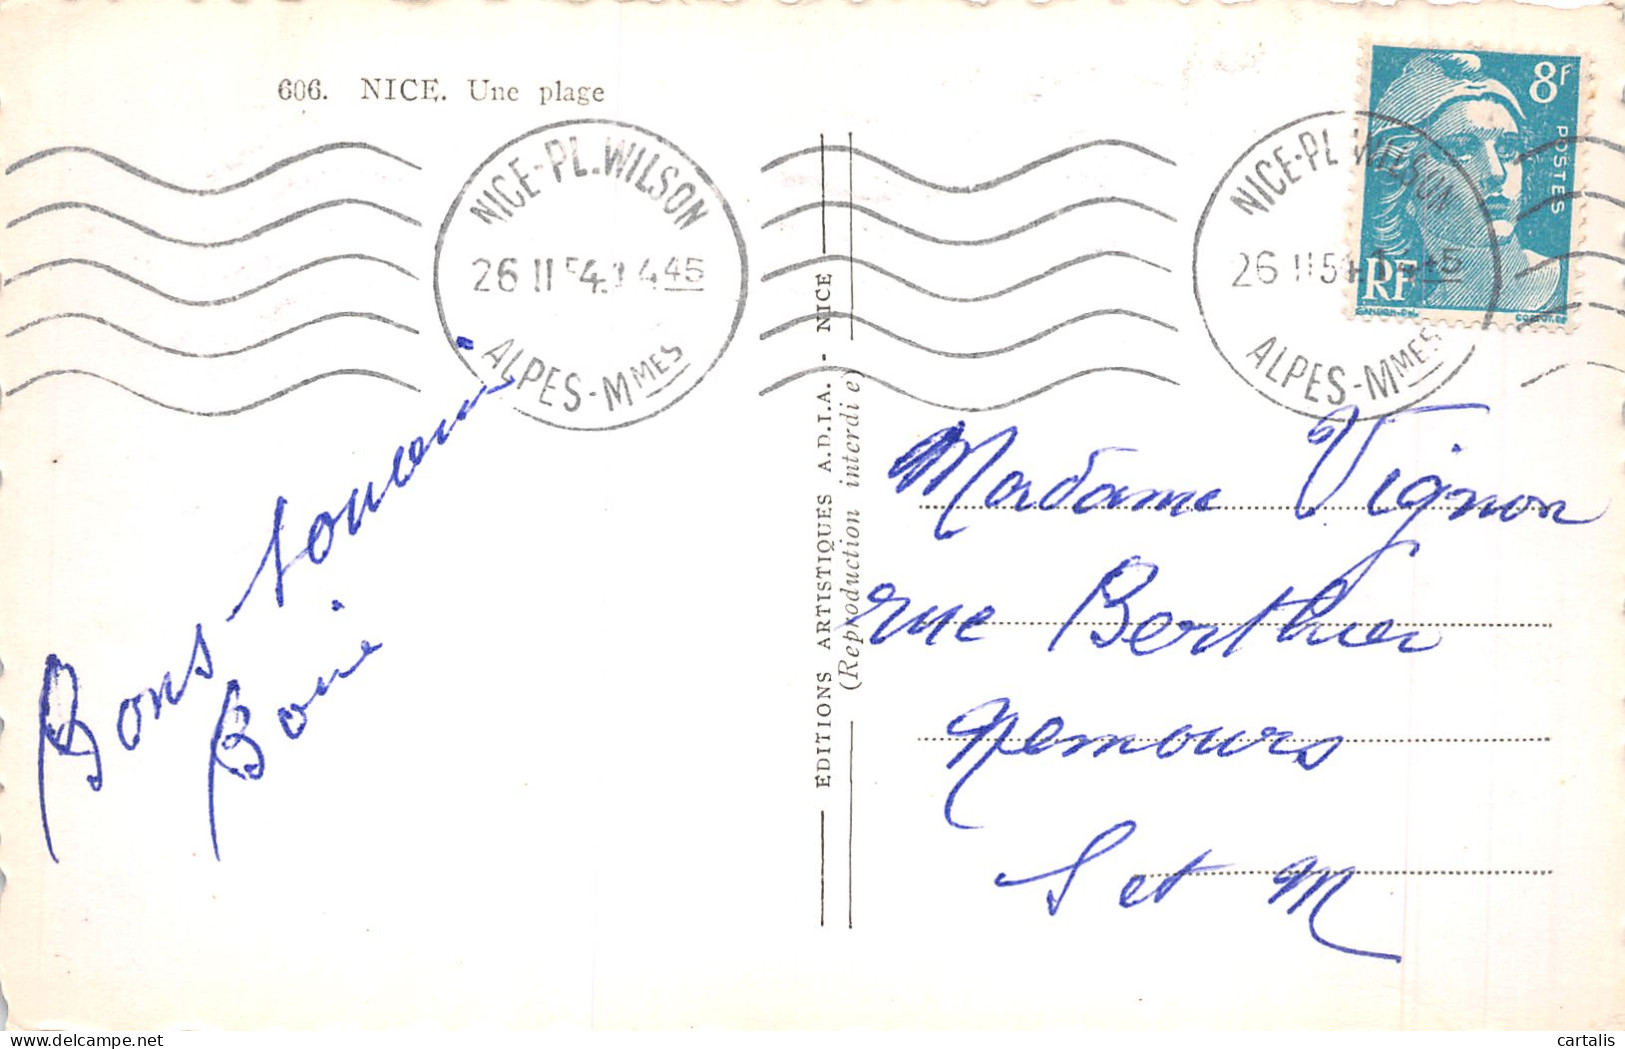 606. NICE. Une plage
NICE-PL.WILSON
26 II 54.14 45
ALPES-MMES
NICE-PL WILSON
26 II 54.
ALPES-MMES
8F
POSTES
RF
GANDON-DEL.
Bons souvenir
EDITIONS ARTISTIQUES A.D.I.A. - NICE
(Reproduction interdite)
Madame Vignon
rue Berthier
Nemours
S et M
cartalis
https://www.delcampe.net